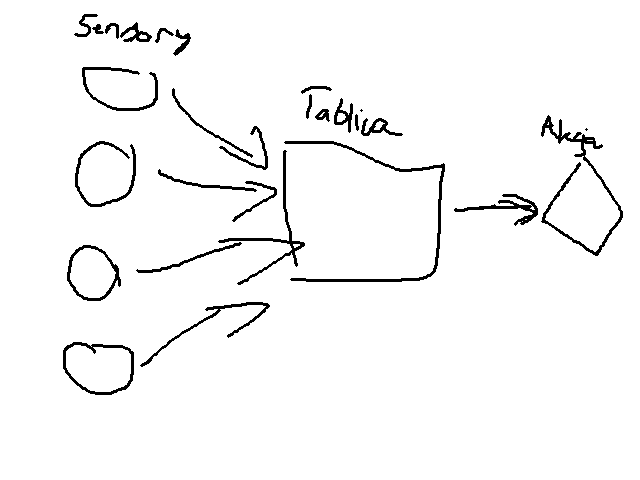 Sensory
Tablica
Akcja